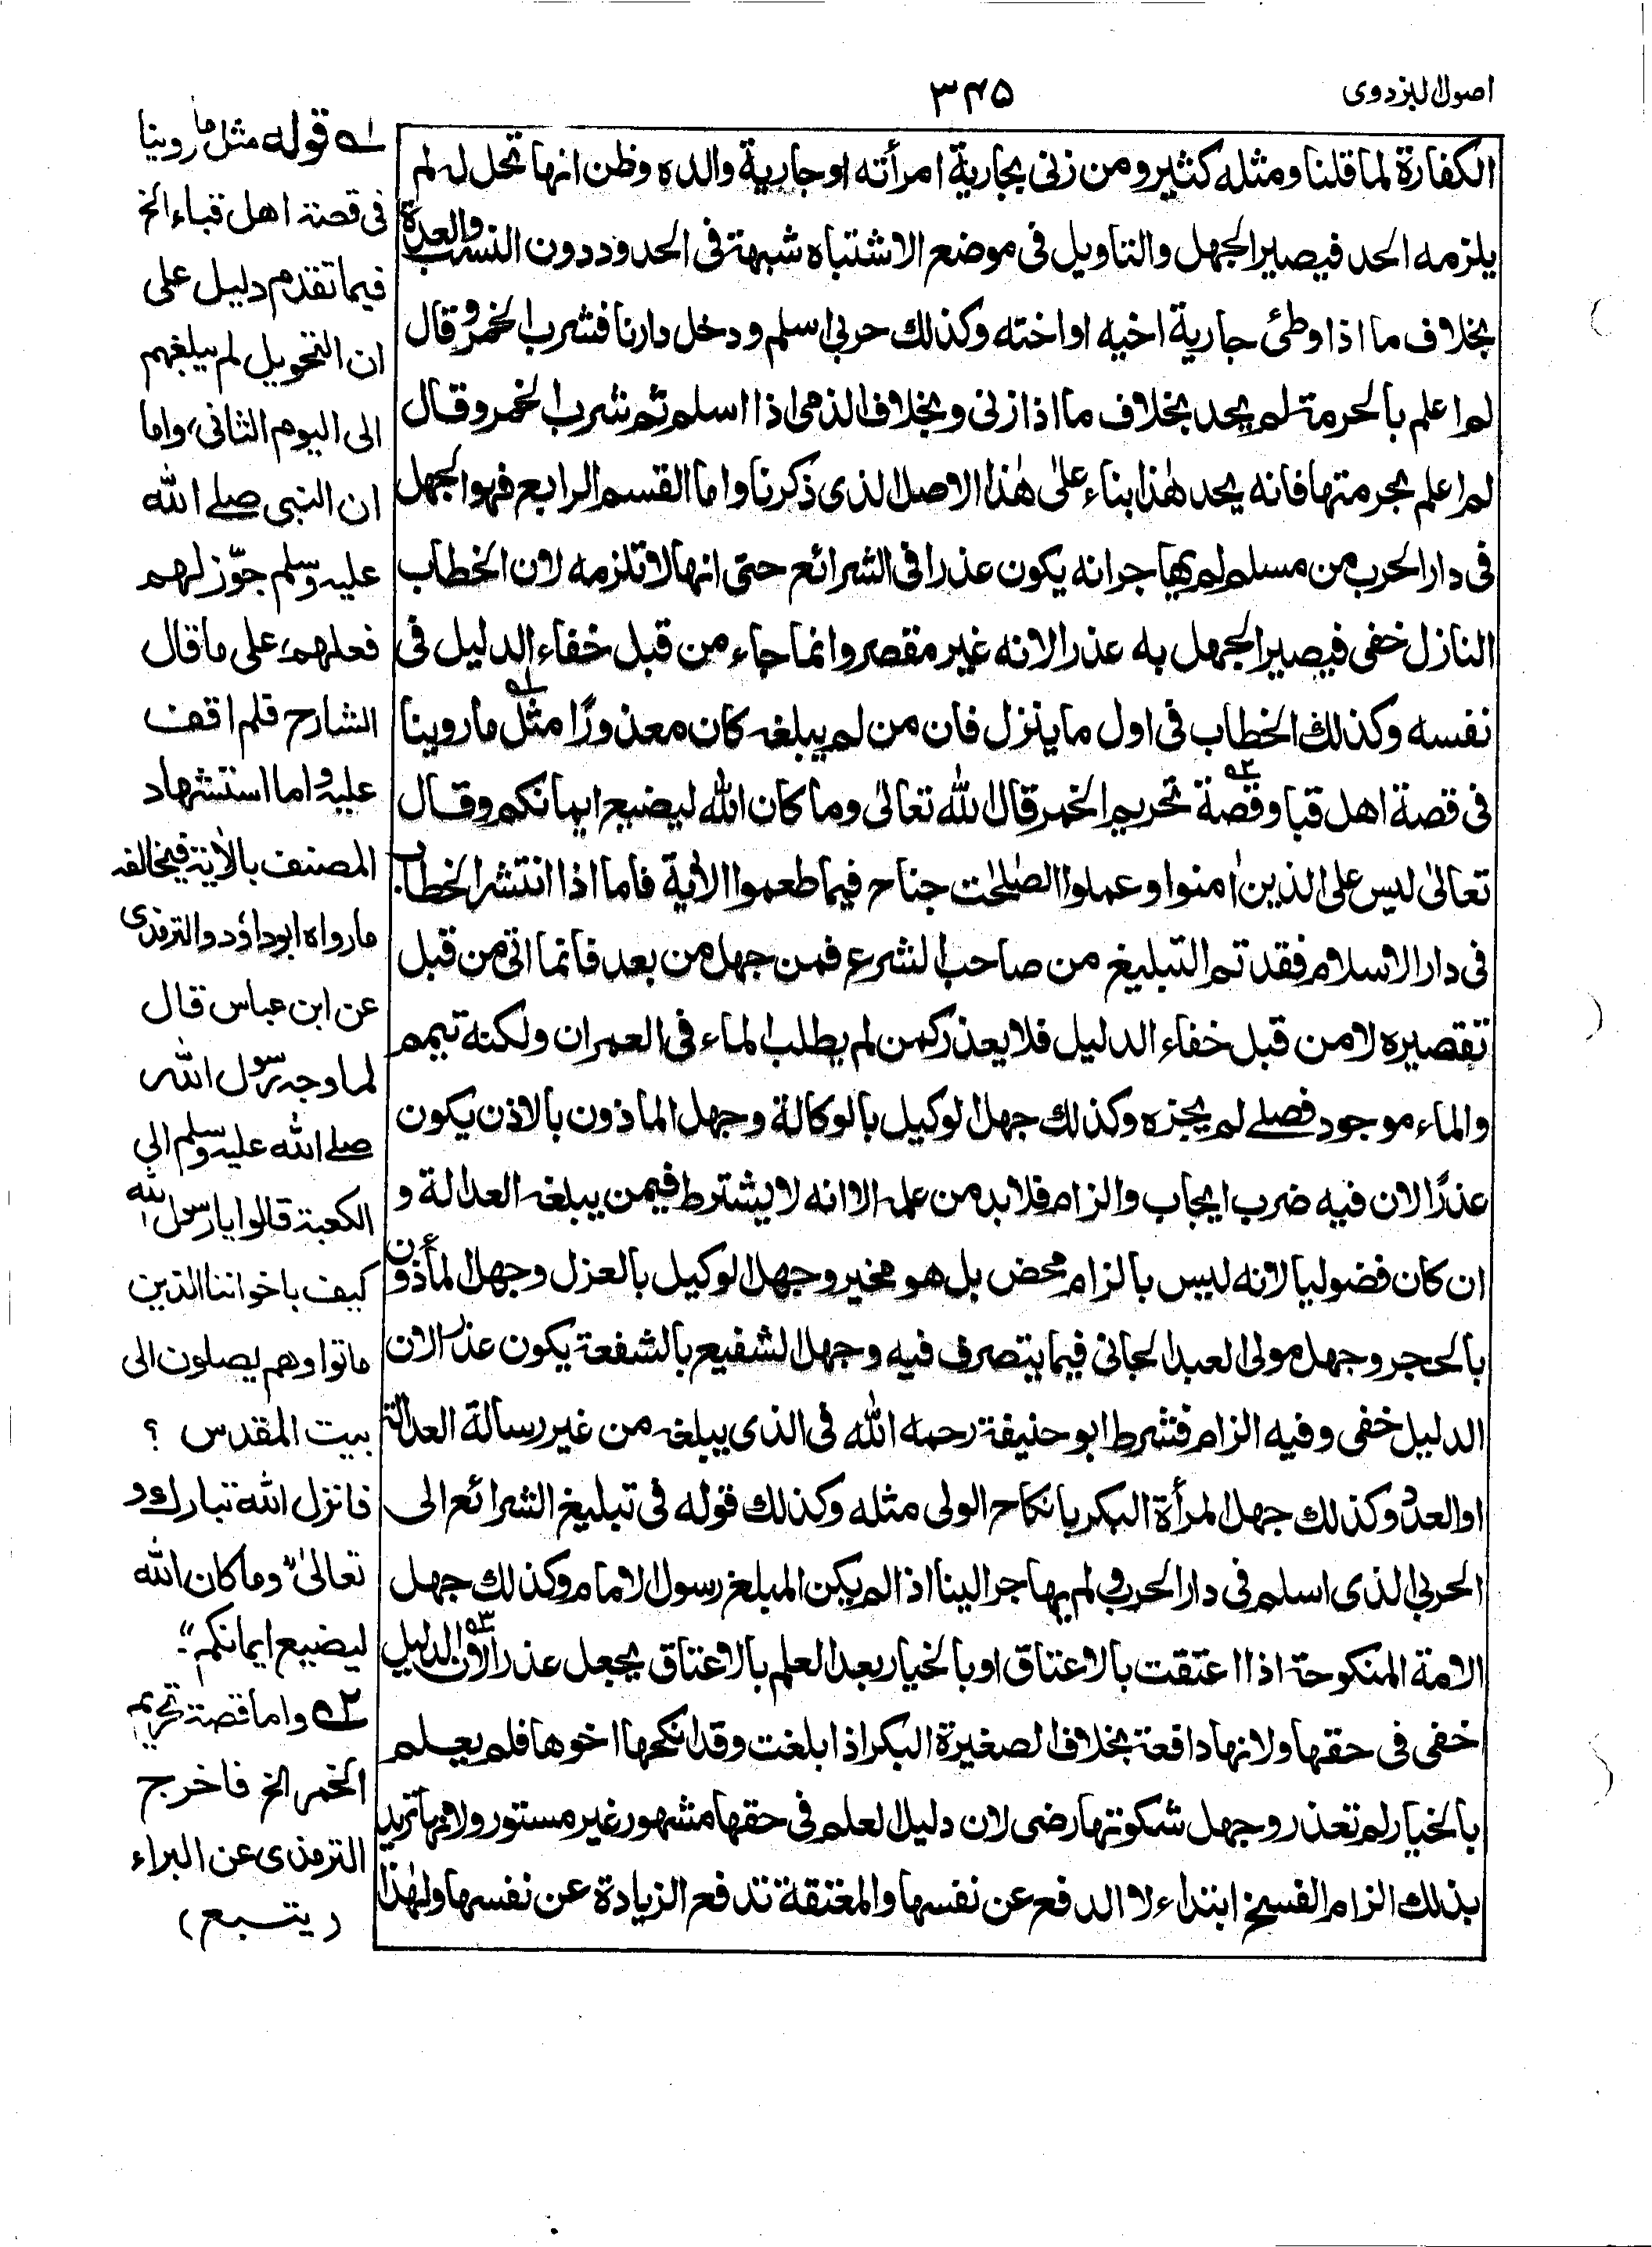 اصول البزدوى
٣۴۵
الكفارة لما قلنا ومثله كثير ومن زنى بجارية امرأته او جارية والده وظن انها تحل له لم
يلزمه الحد فيصير الجهل والتاويل فى موضع الاشتباه شبهة فى الحدود دون النسب والعدة
بخلاف ما اذا وطئ جارية اخيه او اخته وكذلك حربى اسلم ودخل دارنا فشرب الخمر وقال
لم اعلم بالحرمة لم يحد بخلاف ما اذا زنى وبخلاف الذمى اذا اسلم ثم شرب الخمر وقال
لم اعلم بحرمتها فانه يحد هٰذا بناء علىٰ هٰذا الاصل الذى ذكرنا واما القسم الرابع فهو الجهل
فى دار الحرب من مسلم لم يهاجر انه يكون عذرا فى الشرائع حتى انها لا تلزمه لان الخطاب
النازل خفى فيصير الجهل به عذرا لانه غير مقصر وانما جاء من قبل خفاء الدليل فى
نفسه وكذلك الخطاب فى اول ما ينزل فان من لم يبلغه كان معذورًا مثل ١ه ما روينا
فى قصة اهل قبا وقصة ٢ه تحريم الخمر قال الله تعالىٰ وما كان الله ليضيع ايمانكم وقال
تعالىٰ ليس على الذين اٰمنوا وعملوا الصلحٰت جناح فيما طعموا الاٰية فاما اذا انتشر الخطاب
فى دار الاسلام فقد تم التبليغ من صاحب الشرع فمن جهل من بعد فانما اتى من قبل
تقصيره لا من قبل خفاء الدليل فلا يعذر كمن لم يطلب الماء فى العمران ولكنه تيمم
والماء موجود فصلے لم يجزه وكذلك جهل الوكيل بالوكالة وجهل الماذون بالاذن يكون
عذرًا لان فيه ضرب ايجاب والزام فلا بد من علمه الا انه لا يشترط فيمن يبلغه العدالة و
ان كان فضوليا لانه ليس بالزام محض بل هو مخير وجهل الوكيل بالعزل وجهل المأذون
بالحجر وجهل مولى العبد الجانى فيما يتصرف فيه وجهل الشفيع بالشفعة يكون عذرا لان
الدليل خفى وفيه الزام فشرط ابو حنيفة رحمه الله فى الذى يبلغه من غير رسالة العدالة
او العدد وكذلك جهل المرأة البكر بانكاح الولى مثله وكذلك قوله فى تبليغ الشرائع الى
الحربى الذى اسلم فى دار الحرب ولم يهاجر الينا اذا لم يكن المبلغ رسول الامام وكذلك جهل
الامة المنكوحة اذا اعتقت بالاعتاق او بالخيار بعد العلم بالاعتاق يجعل عذرا لان ٣ه الدليل
خفى فى حقها ولانها دافعة بخلاف الصغيرة البكر اذا بلغت وقد انكحها اخوها فلم يعلم
بالخيار لم تعذر وجهل سكوتها رضى لان دليل العلم فى حقها مشهور غير مستور ولانها تريد
بذلك الزام الفسخ ابتداء لا الدفع عن نفسها والمعتقة تدفع الزيادة عن نفسها ولهٰذا
١ه قوله مثل ما روينا
فى قصة اهل قباء الخ
فيما تقدم دليل على
ان التحويل لم يبلغهم
الى اليوم الثانى، واما
ان النبى صلے الله
عليه وسلم جوّز لهم
فعلهم، على ما قال
الشارح فلم اقف
عليه واما استشهاد
المصنف بالاٰية فيخالفه
ما رواه ابو داؤد والترمذى
عن ابن عباس قال
لما وجه رسول الله
صلے الله عليه وسلم الى
الكعبة قالوا يا رسول الله
كيف باخواننا الذين
ماتوا وهم يصلون الى
بيت المقدس ؟
فانزل الله تبارك و
تعالىٰ "وما كان الله
ليضيع ايمانكم".
٢ه واما قصة تحريم
الخمر الخ فاخرج
الترمذى عن البراء
(يتبع)